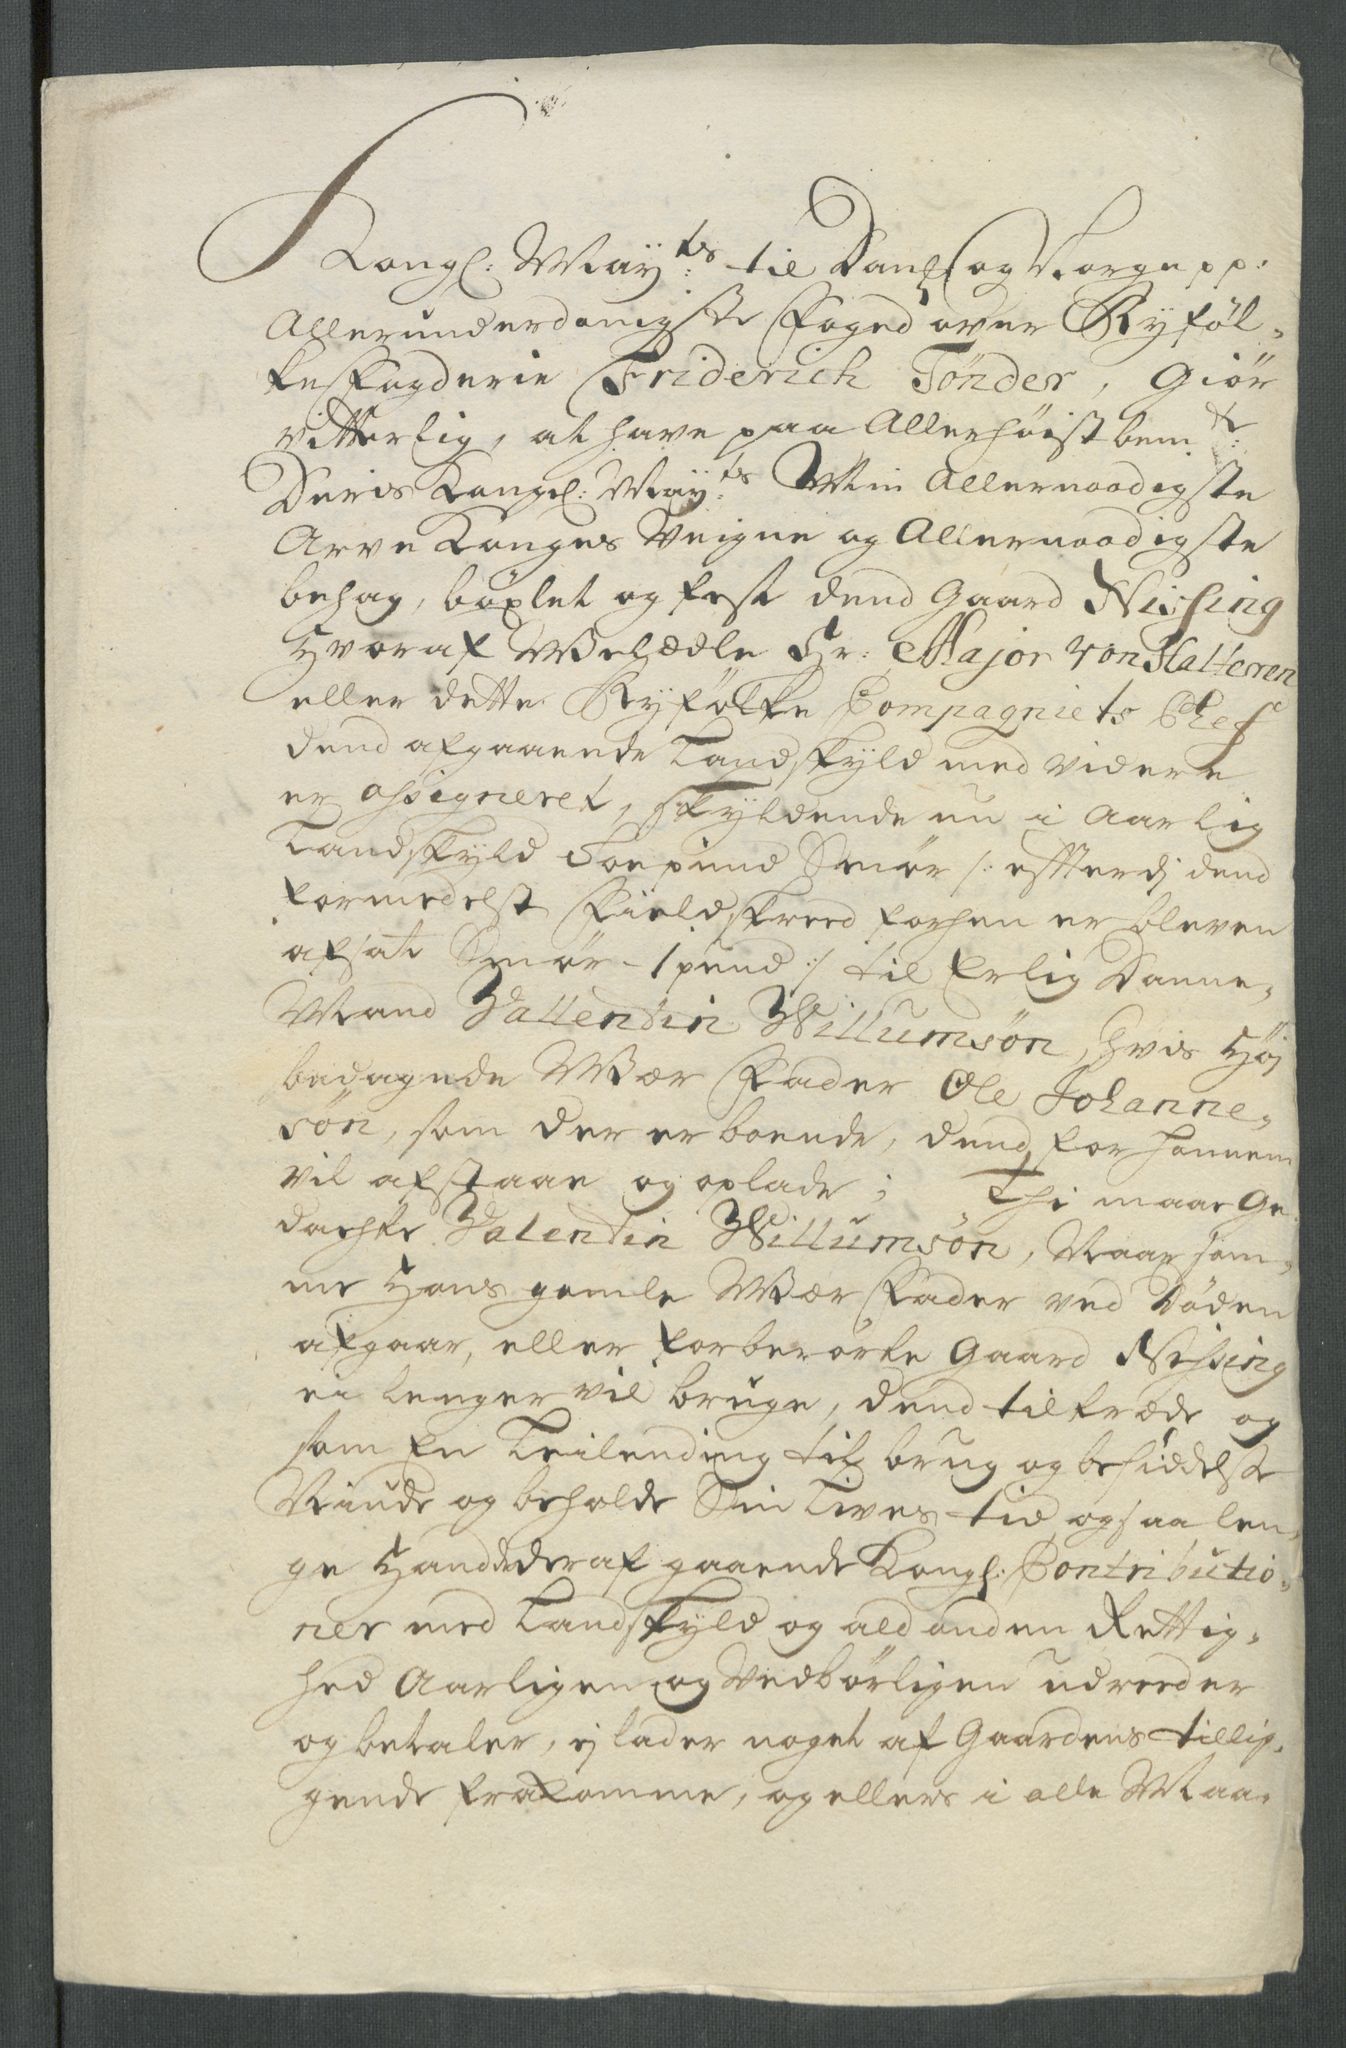 Kongl: May:ts til Dank og Norge pp:
Allerunderdanigste Foged over Ryfyl-
ke Fogderie Friderich Tönder, Giör
vitterlig, at have paa Allerhöist bem:te
Deris Kongel: May:ts Min Allernaadigste
Arve Konges Veigne og Allernaadigste
behag, böxlet og fest dend Gaard Nissing
Hvoraf Velædle Hr: Major von
eller dette Ryfölke Compagniets Chef
dend afgaaende Landskyld med videre
er assigneret, skyldende nu i Aarlig
Landskyld Toe pund Smör /: efterdj dend
formedelst Fieldskreed forhen er bleven
afsat Smör - 1 pund :/ til Erlig Danne-
Mand Vallendin Willumsön, hvis Höj
bedagede Vær Fader Ole Johanne-
sön, som der er boende, dend for hannem
vil afstaae og oplade; Thi maae Ge-
dachte Valendin Willumsön, Naar sam-
me Hans gamle Vær Fader ved Döden
afgaar, eller forberörte Gaard Nissing
ei lenger vil bruge, dend tiltræde og
som En Leilending til brug og besiddelse
Niude og beholde Sin Lives tid, og saa len-
ge Hand deraf gaaende Kongl: Contributio-
ner med Landskyld og ald anden Rettig-
hed Aarligen og Vedbörligen udreeder
og betaler, ej lader noget af Gaardens tillig-
gende frakomme, og ellers i alle Maa-